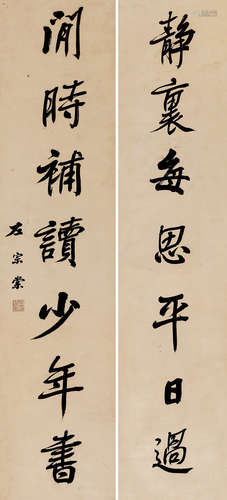 静裏每思平日過
閒時補讀少年書
左宗棠